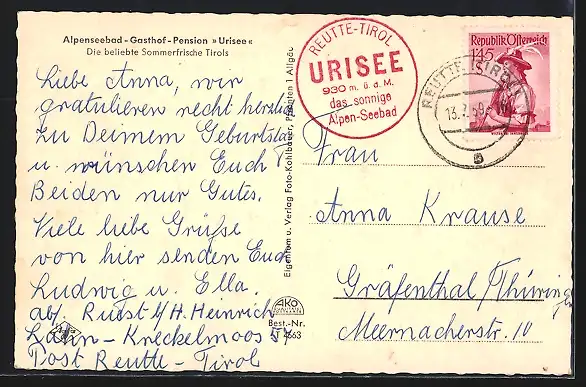 Alpenseebad - Gasthof - Pension »Urisee«
Die beliebte Sommerfrische Tirols
Liebe Anna, wir
gratulieren recht herzlich
zu Deinem Geburtstag
u. wünschen Euch
Beiden nur Gutes.
Viele liebe Grüße
von hier senden Euch
Ludwig u. Ella.
abs. Rudst b/H. Heinrich
Lähn-Kreckelmoos 54
Post Reutte - Tirol
Eigentum u. Verlag Foto-Kohlbauer, Pfronten i. Allgäu
AKO
Best.-Nr.
T 4663
REUTTE-TIROL
URISEE
930 m. ü. d. M.
das sonnige
Alpen-Seebad
Republik Österreich
1.45
REUTTE (TIROL)
13.7.59
b
Frau
Anna Krause
Gräfenthal/Thüringen
Meernacherstr. 10